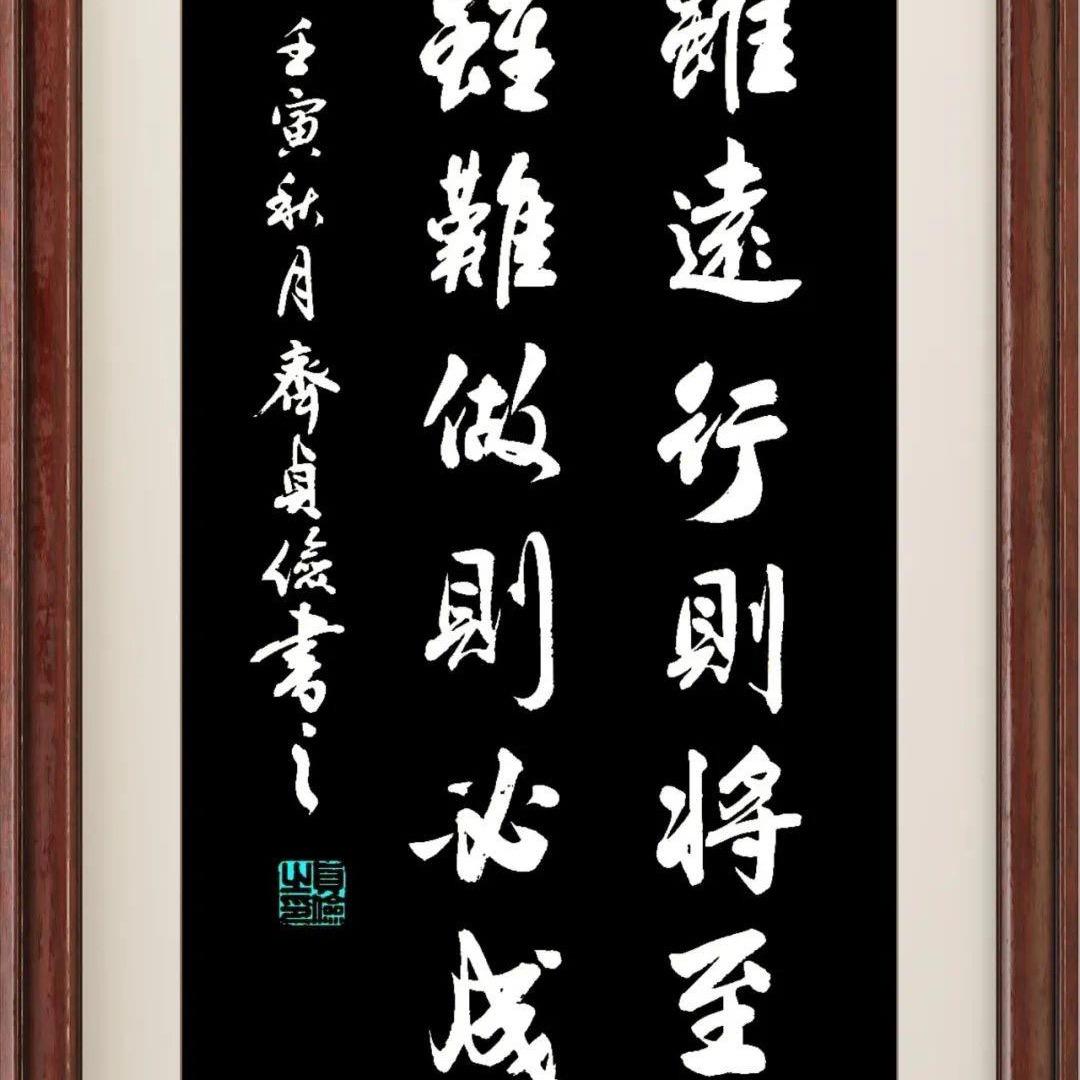 雖遠行則將至
雖難做則必成
壬寅秋月齊貞儉書之
貞儉之印